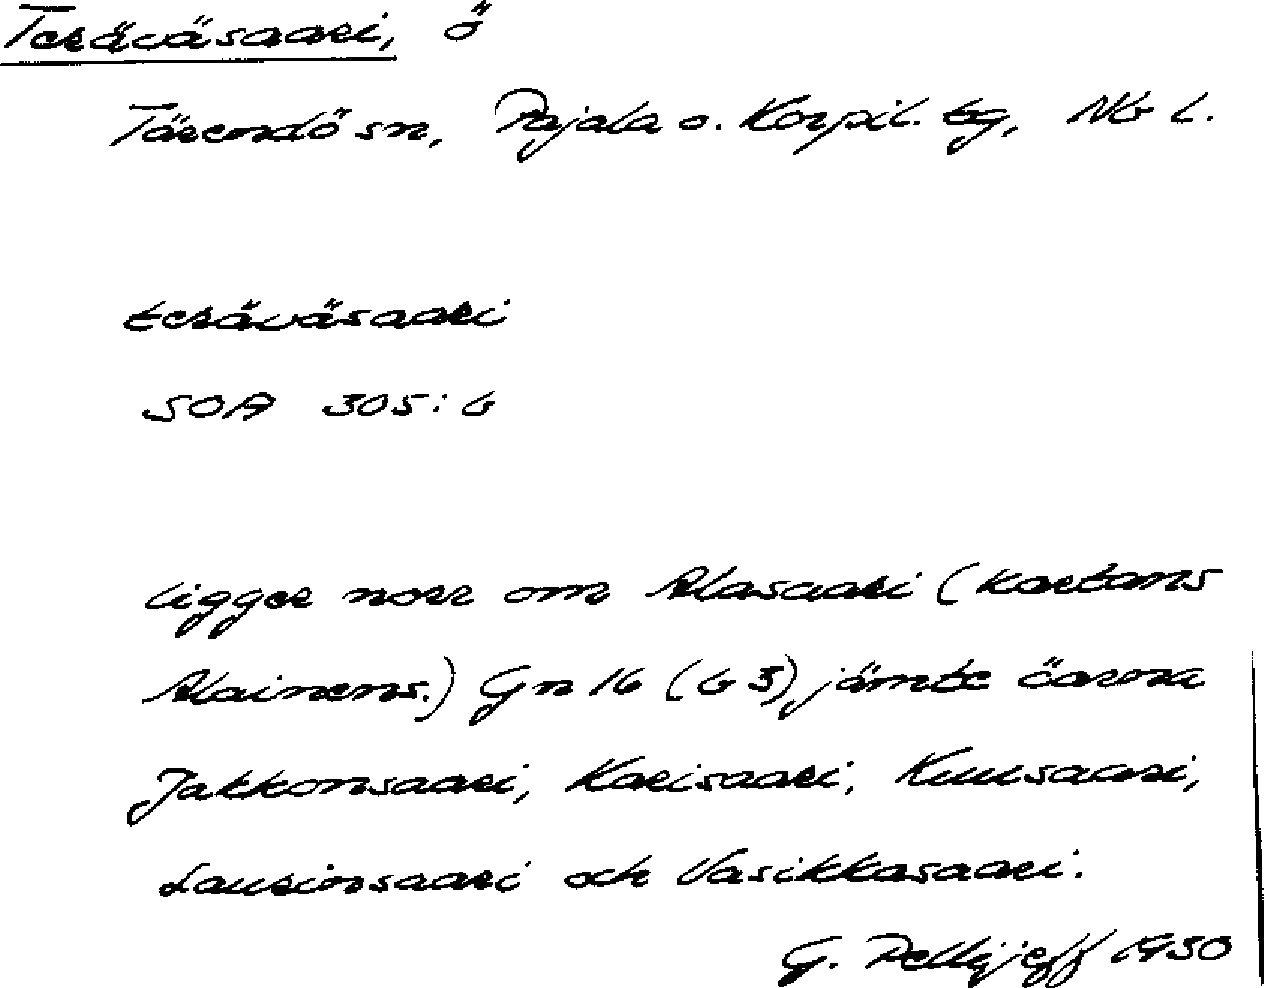 Teräväsaari, ö
Tärendö sn, Pajala o. Korpil. tg, Nb l.
teräväsaari
SOA 305:6
ligger norr om Alasaari (kartans
Alainens.) Gn 16 (63) jämte öarna
Jakkonsaari, Karisaari, Kuusaari,
Laurinsaari och Vasikkasaari.
G. Pellijeff 1950